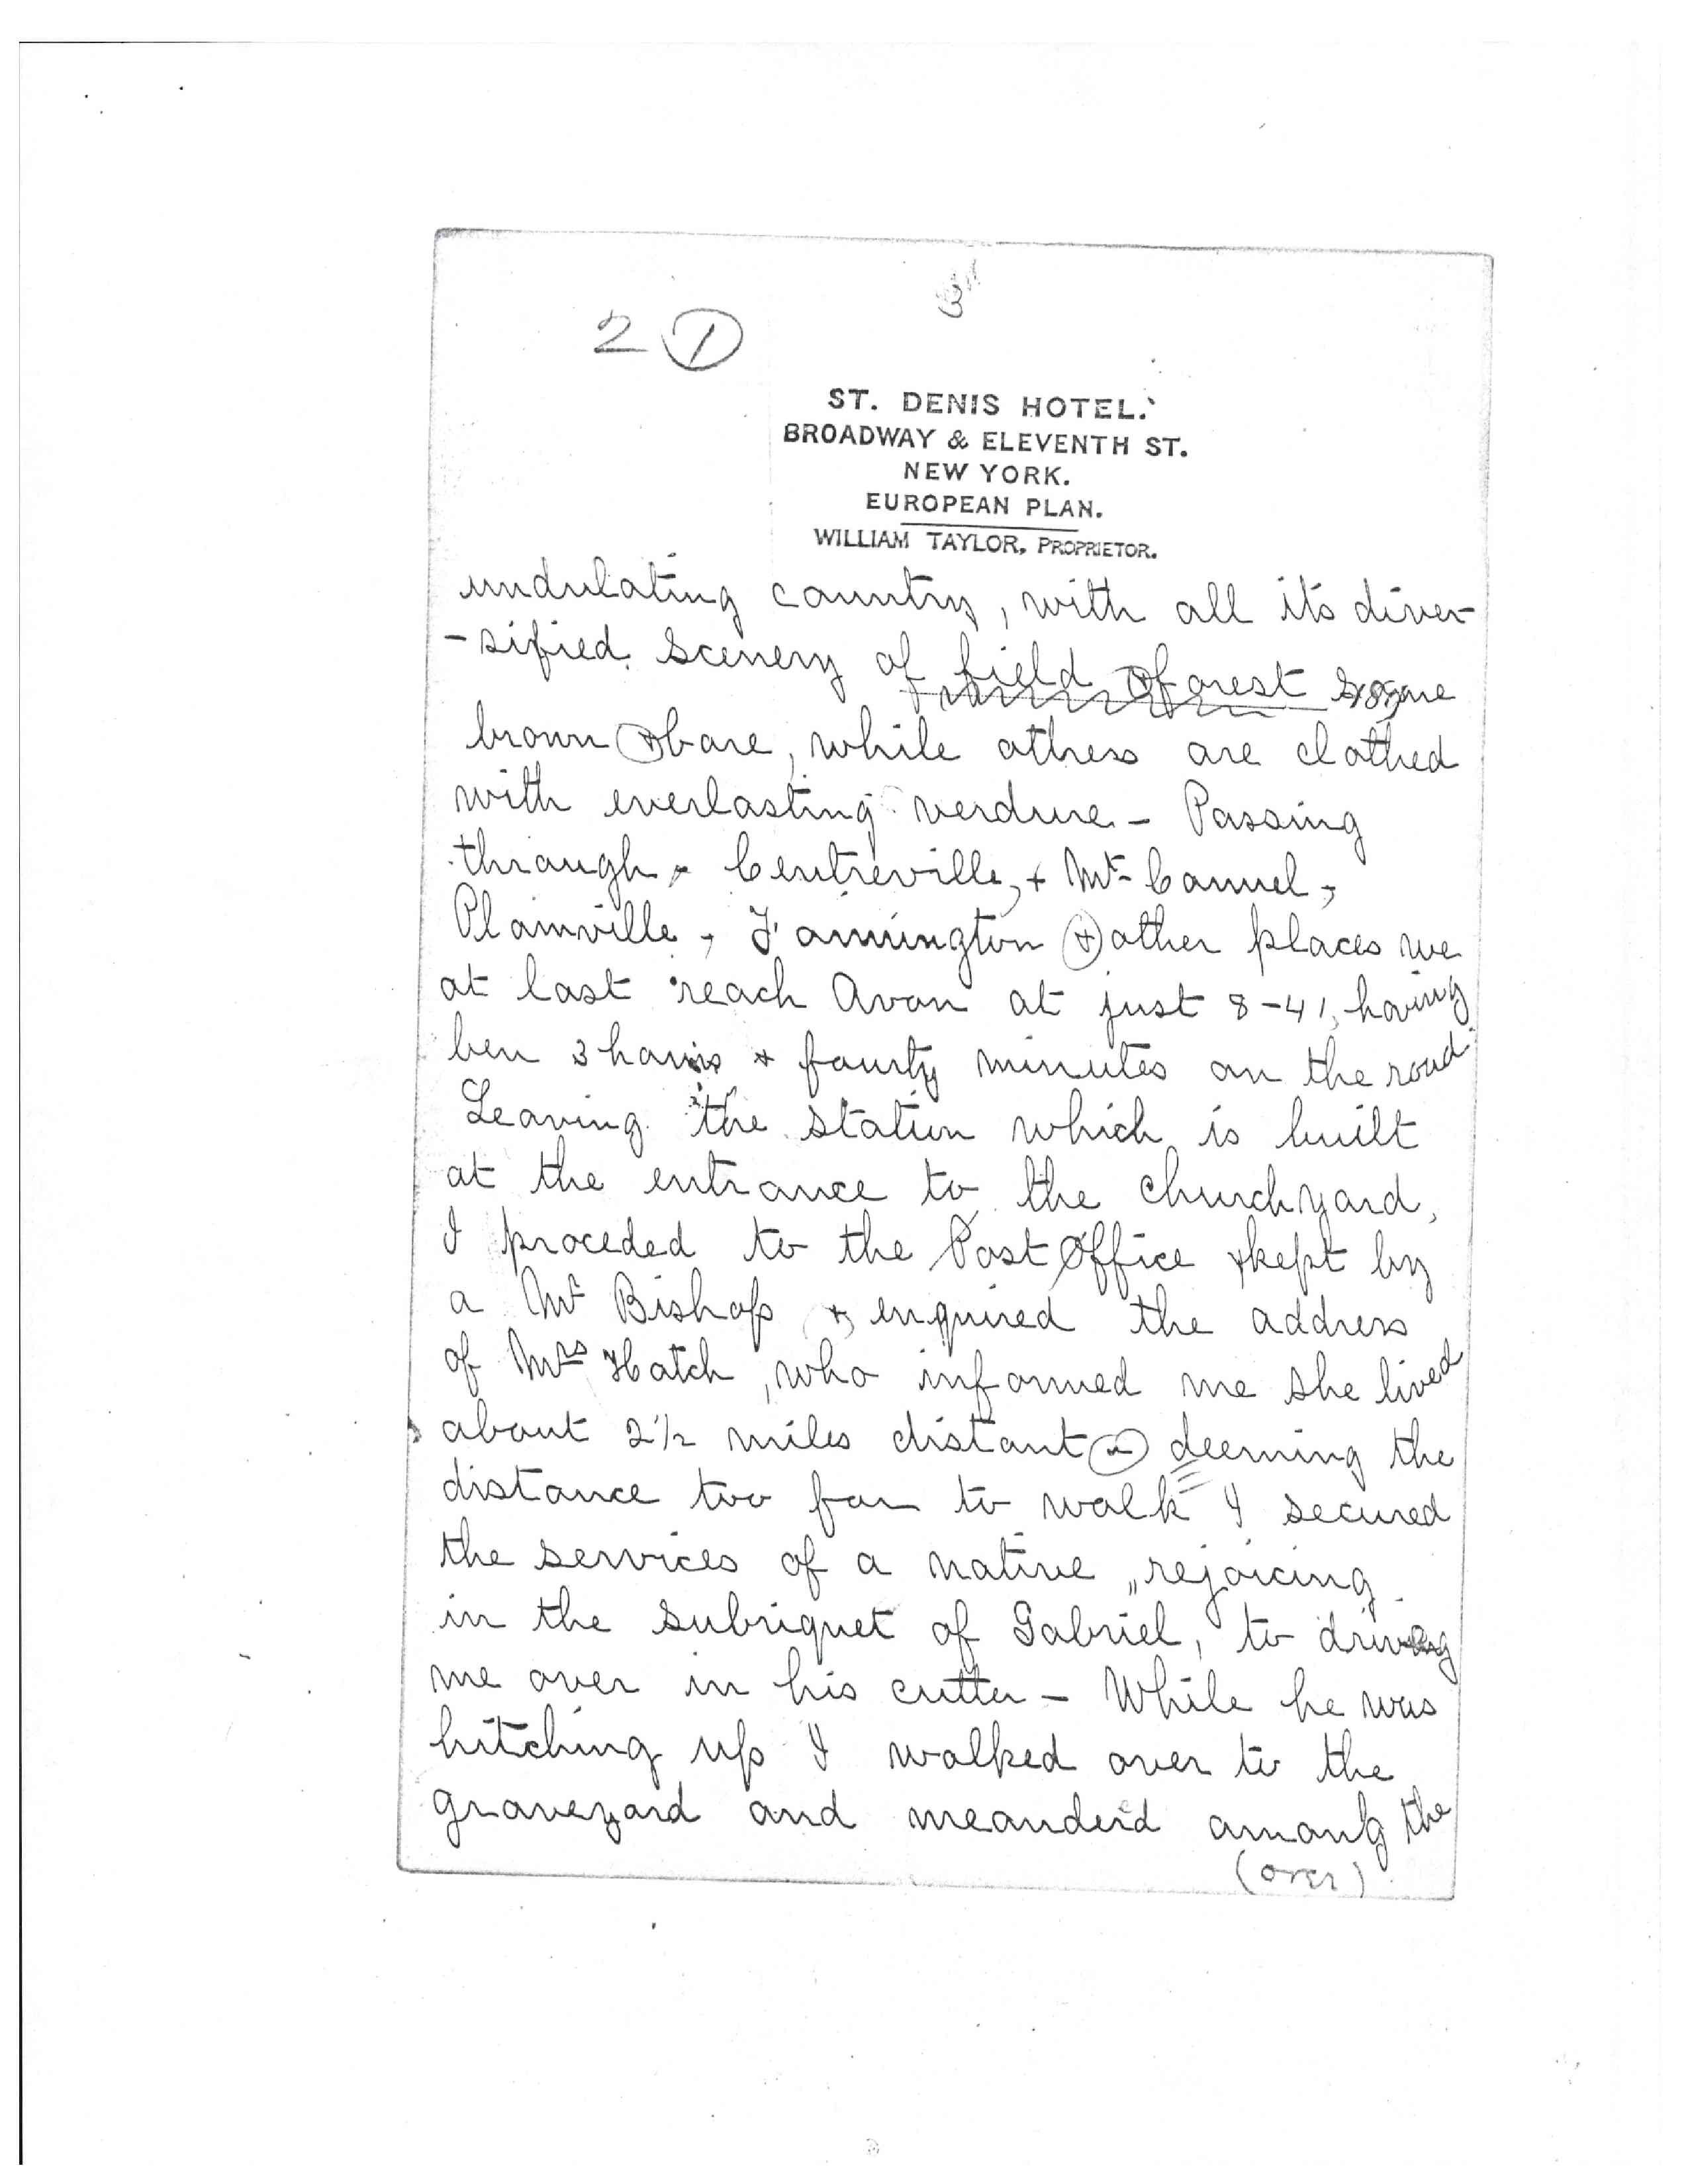 2 ①
ST. DENIS HOTEL.
BROADWAY & ELEVENTH ST.
NEW YORK.
EUROPEAN PLAN.
WILLIAM TAYLOR, PROPRIETOR.
undulating country, with all its diver-
-sified scenery of field & forest some
brown & bare, while othres are clothed
with everlasting verdure - Passing
through - Centreville, + Mt- Carmel,
Plainville, Farmington & other places we
at last reach Avon at just 8-41, having
ben 3 hours & fourty minutes on the road.
Leaving the station which is built
at the entrance to the churchyard,
I proceded to the Post Office & kept by
a Mr Bishop & enquired the address
of Mrs Hatch, who informed me she lived
about 2½ miles distant deeming the
distance too far to walk I secured
the services of a native, rejoicing
in the subriquet of Gabriel, to driving
me over in his cutter - While he was
hitching up I walked over to the
graveyard and meanderd among the
(over)